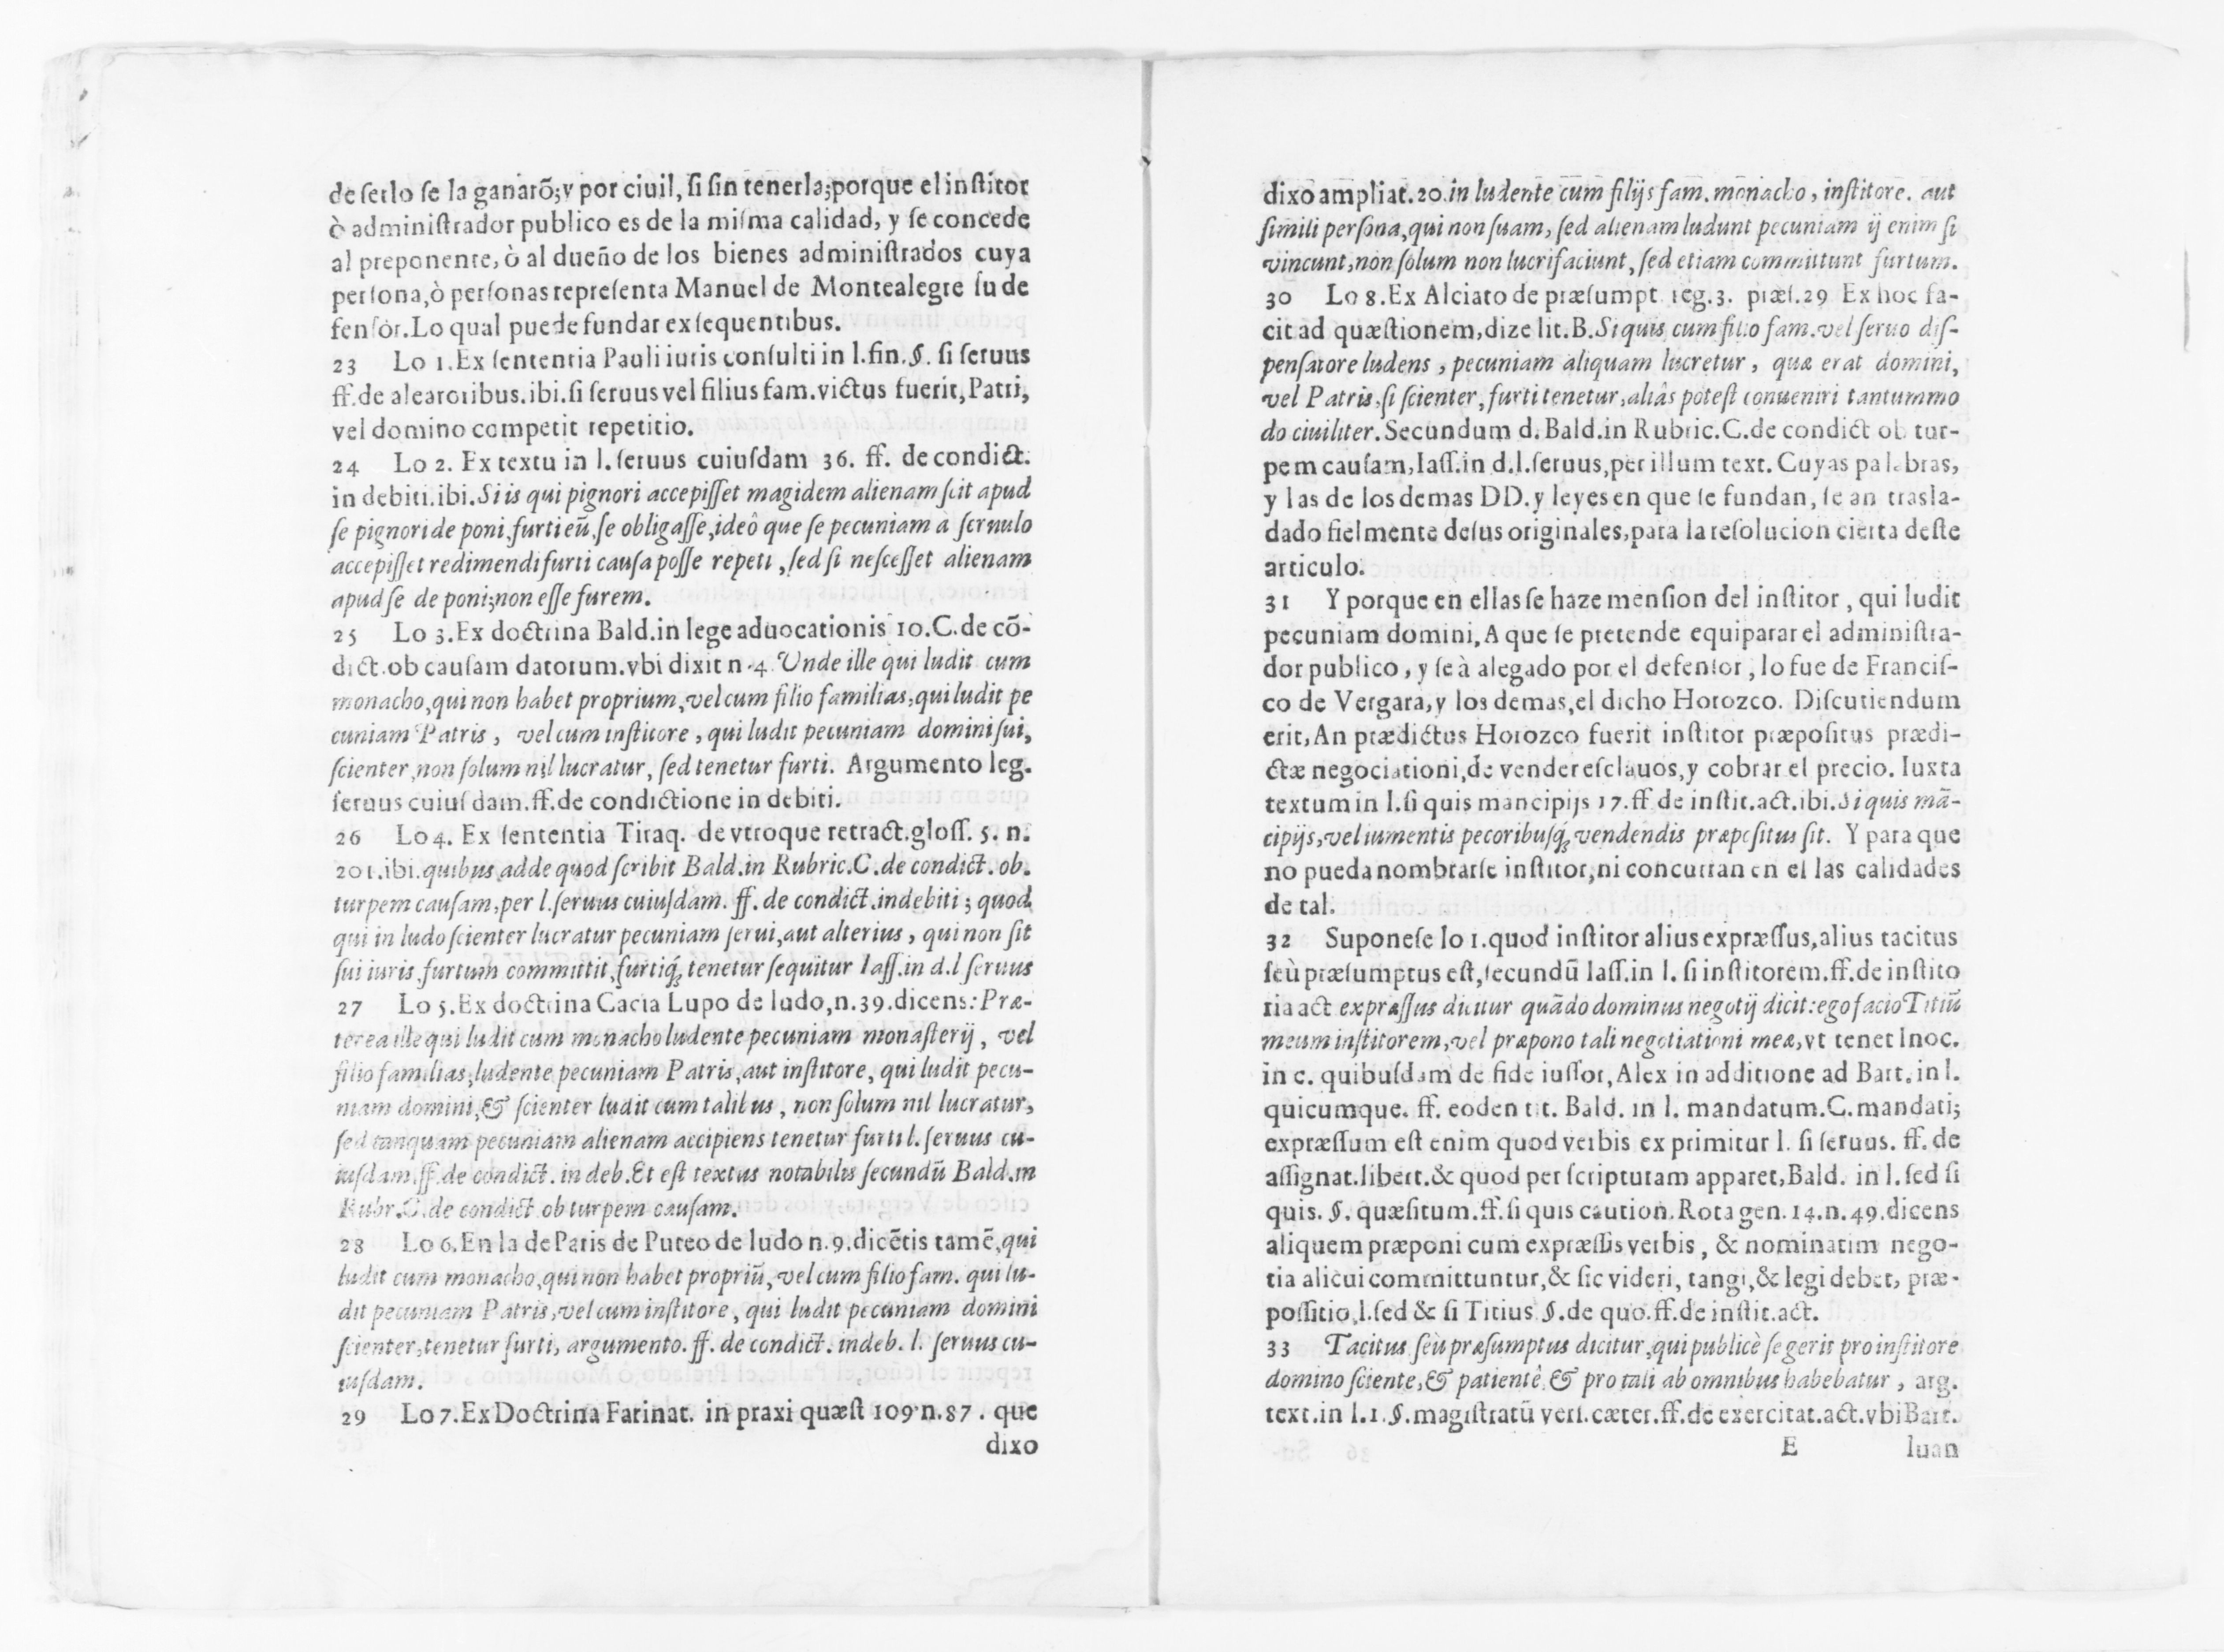 de serlo se la ganarō; y por ciuil, si sin tenerla; porque el institor
ò administrador publico es de la misma calidad, y se concede
al preponente, ò al dueño de los bienes administrados cuya
persona, ò personas representa Manuel de Montealegre su de
fensor. Lo qual puede fundar ex sequentibus.
23 Lo 1. Ex sententia Pauli iuris consulti in l. fin. §. si seruus
ff. de alearoribus. ibi. si seruus vel filius fam. victus fuerit, Patri,
vel domino competit repetitio.
24 Lo 2. Ex textu in l. seruus cuiusdam 36. ff. de condict.
in debiti. ibi. Si is qui pignori accepisset magidem alienam scit apud
se pignori de poni, furti eū, se obligasse, ideô que se pecuniam à seruulo
accepisset redimendi furti causa posse repeti, sed si nescesset alienam
apud se de poni; non esse furem.
25 Lo 3. Ex doctrina Bald. in lege aduocationis 10. C. de cō-
dict. ob causam datorum. vbi dixit n. 4. Unde ille qui ludit cum
monacho, qui non habet proprium, vel cum filio familias, qui ludit pe
cuniam Patris, vel cum institore, qui ludit pecuniam domini sui,
scienter, non solum nil lucratur, sed tenetur furti. Argumento leg.
seruus cuiusdam. ff. de condictione in debiti.
26 Lo 4. Ex sententia Tiraq. de vtroque retract. gloss. 5. n.
201. ibi. quibus adde quod scribit Bald. in Rubric. C. de condict. ob.
turpem causam, per l. seruus cuiusdam. ff. de condict. indebiti; quod
qui in ludo scienter lucratur pecuniam serui, aut alterius, qui non sit
sui iuris, furtum committit, furtiq́; tenetur sequitur Iass. in d. l seruus
27 Lo 5. Ex doctrina Cacia Lupo de ludo, n. 39. dicens: Præ-
terea ille qui ludit cum monacho ludente pecuniam monasterij, vel
filio familias, ludente pecuniam Patris, aut institore, qui ludit pecu-
niam domini, & scienter ludit cum talibus, non solum nil lucratur,
sed tanquam pecuniam alienam accipiens tenetur furti l. seruus cu-
iusdam. ff. de condict. in deb. Et est textus notabilis secundū Bald. in
Rubr. C. de condict ob turpem causam.
28 Lo 6. En la de Paris de Puteo de ludo n. 9. dicētis tamē, qui
ludit cum monacho, qui non habet propriū, vel cum filio fam. qui lu-
dit pecuniam Patris, vel cum institore, qui ludit pecuniam domini
scienter, tenetur furti, argumento. ff. de condict. indeb. l. seruus cu-
iusdam.
29 Lo 7. Ex Doctrina Farinat. in praxi quæst 109. n. 87. que
dixo
dixo ampliat. 20. in ludente cum filijs fam. monacho, institore. aut
simili persona, qui non suam, sed alienam ludunt pecuniam ij enim si
vincunt, non solum non lucrifaciunt, sed etiam committunt furtum.
30 Lo 8. Ex Alciato de præsumpt reg. 3. præs. 29 Ex hoc fa-
cit ad quæstionem, dize lit. B. Si quis cum filio fam. vel seruo dis-
pensatore ludens, pecuniam aliquam lucretur, quæ erat domini,
vel Patris, si scienter, furti tenetur, aliâs potest conueniri tantummo
do ciuiliter. Secundum d. Bald. in Rubric. C. de condict ob tur-
pem causam, Iass. in d. l. seruus, per illum text. Cuyas palabras,
y las de los demas DD. y leyes en que se fundan, se an trasla-
dado fielmente de sus originales, para la resolucion cierta deste
articulo.
31 Y porque en ellas se haze mension del institor, qui ludit
pecuniam domini, A que se pretende equiparar el administra-
dor publico, y se à alegado por el defensor, lo fue de Francis-
co de Vergara, y los demas, el dicho Horozco. Discutiendum
erit, An prædictus Horozco fuerit institor præpositus prædi-
ctæ negociationi, de vender esclauos, y cobrar el precio. Iuxta
textum in l. si quis mancipijs 17. ff de instit. act. ibi. Si quis mā-
cipijs, vel iumentis pecoribusq́; vendendis præpositus sit. Y para que
no pueda nombrarse institor, ni concurran en el las calidades
de tal.
32 Suponese lo 1. quod institor alius expræssus, alius tacitus
seù præsumptus est, secundū Iass. in l. si institorem. ff. de instito
ria act expræssus dicitur quādo dominus negotij dicit: ego facio Titiū
meum institorem, vel præpono tali negotiationi meæ, vt tenet Inoc.
in c. quibusdam de fide iussor, Alex in additione ad Bart. in l.
quicumque. ff. eoden tit. Bald. in l. mandatum. C. mandati;
expræssum est enim quod verbis exprimitur l. si seruus. ff. de
assignat. libert. & quod per scripturam apparet, Bald. in l. sed si
quis. §. quæsitum. ff. si quis caution. Rota gen. 14. n. 49. dicens
aliquem præponi cum expræssis verbis, & nominatim nego-
tia alicui committuntur, & sic videri, tangi, & legi debet, præ-
possitio, l. sed & si Titius §. de quo. ff. de instit. act.
33 Tacitus seù præsumptus dicitur, qui publicè se gerit pro institore
domino sciente, & patientê, & pro tali ab omnibus habebatur, arg.
text. in l. 1. §. magistratū vers. cæter. ff. de exercitat. act. vbi Bart.
E Iuan